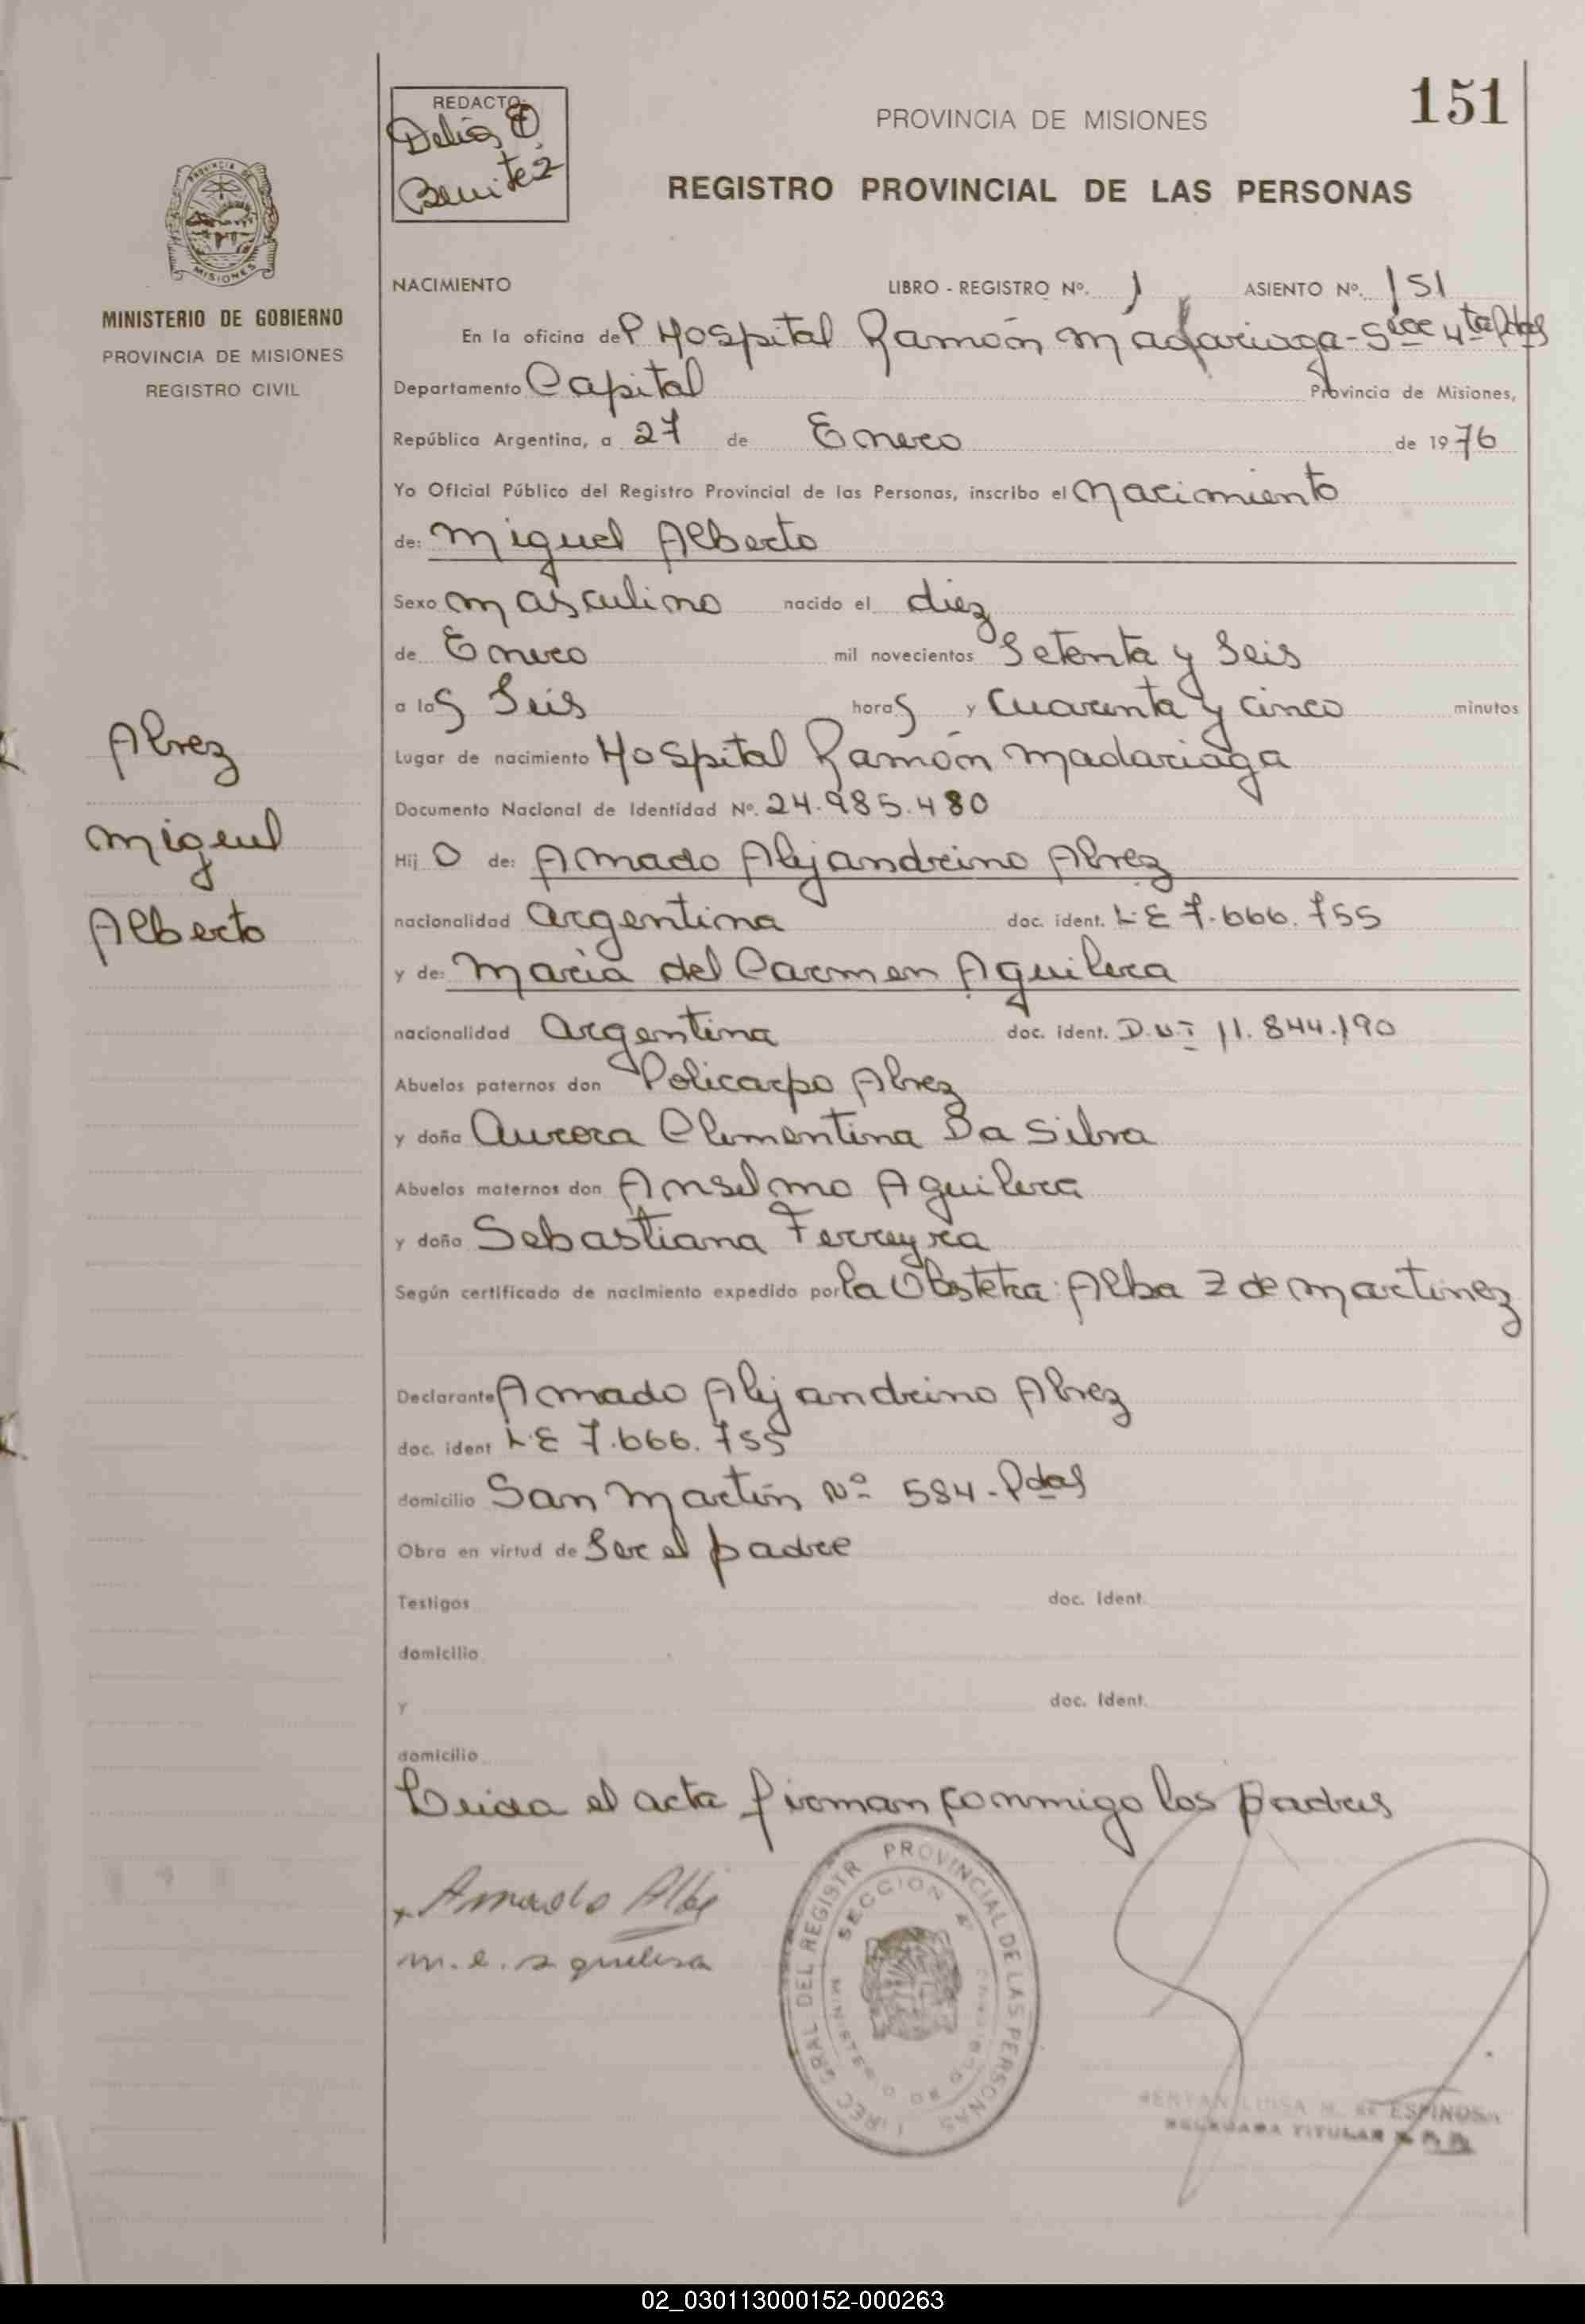 151
REDACTO:
Delia E
Benitez
PROVINCIA DE MISIONES
REGISTRO PROVINCIAL DE LAS PERSONAS
MISIONES
MINISTERIO DE GOBIERNO
PROVINCIA DE MISIONES
REGISTRO CIVIL
NACIMIENTO LIBRO - REGISTRO Nº. 1 ASIENTO Nº. 151
En la oficina del Hospital Ramón Madariaga - Scce 4ta Pdas
Departamento Capital Provincia de Misiones,
República Argentina, a 27 de Enero de 1976
Yo Oficial Público del Registro Provincial de las Personas, inscribo el Nacimiento
de: Miguel Alberto
Sexo Masculino nacido el diez
de Enero mil novecientos Setenta y Seis
a las Seis horas y Cuarenta y Cinco minutos
Lugar de nacimiento Hospital Ramón Madariaga
Documento Nacional de Identidad Nº. 24.985.480
Hij o de: Amado Alejandrino Alvez
nacionalidad Argentina doc. ident. L.E 7.666.755
y de: Maria del Carmen Aguilera
nacionalidad Argentina doc. ident. D.N.I 11.844.190
Abuelos paternos don Policarpo Alvez
y doña Aurora Clementina Da Silva
Abuelos maternos don Anselmo Aguilera
y doña Sebastiana Ferreyra
Según certificado de nacimiento expedido por la Obstetra: Alba Z de Martinez
Declarante Amado Alejandrino Alvez
doc. ident L.E 7.666.755
domicilio San Martín Nº 584 - Pdas
Obra en virtud de Ser el padre
Testigos doc. Ident.
domicilio
y doc. Ident.
domicilio
Leida el acta firman conmigo los padres
Alvez
Miguel
Alberto
x Amado Albe
m. c. aguilera
DIREC GRAL DEL REGISTR PROVINCIAL DE LAS PERSONAS
SECCION 4ª
MINISTERIO DE GOBIERNO
LUISA M. de ESPINOSA
DELEGADA TITULAR
02_030113000152-000263